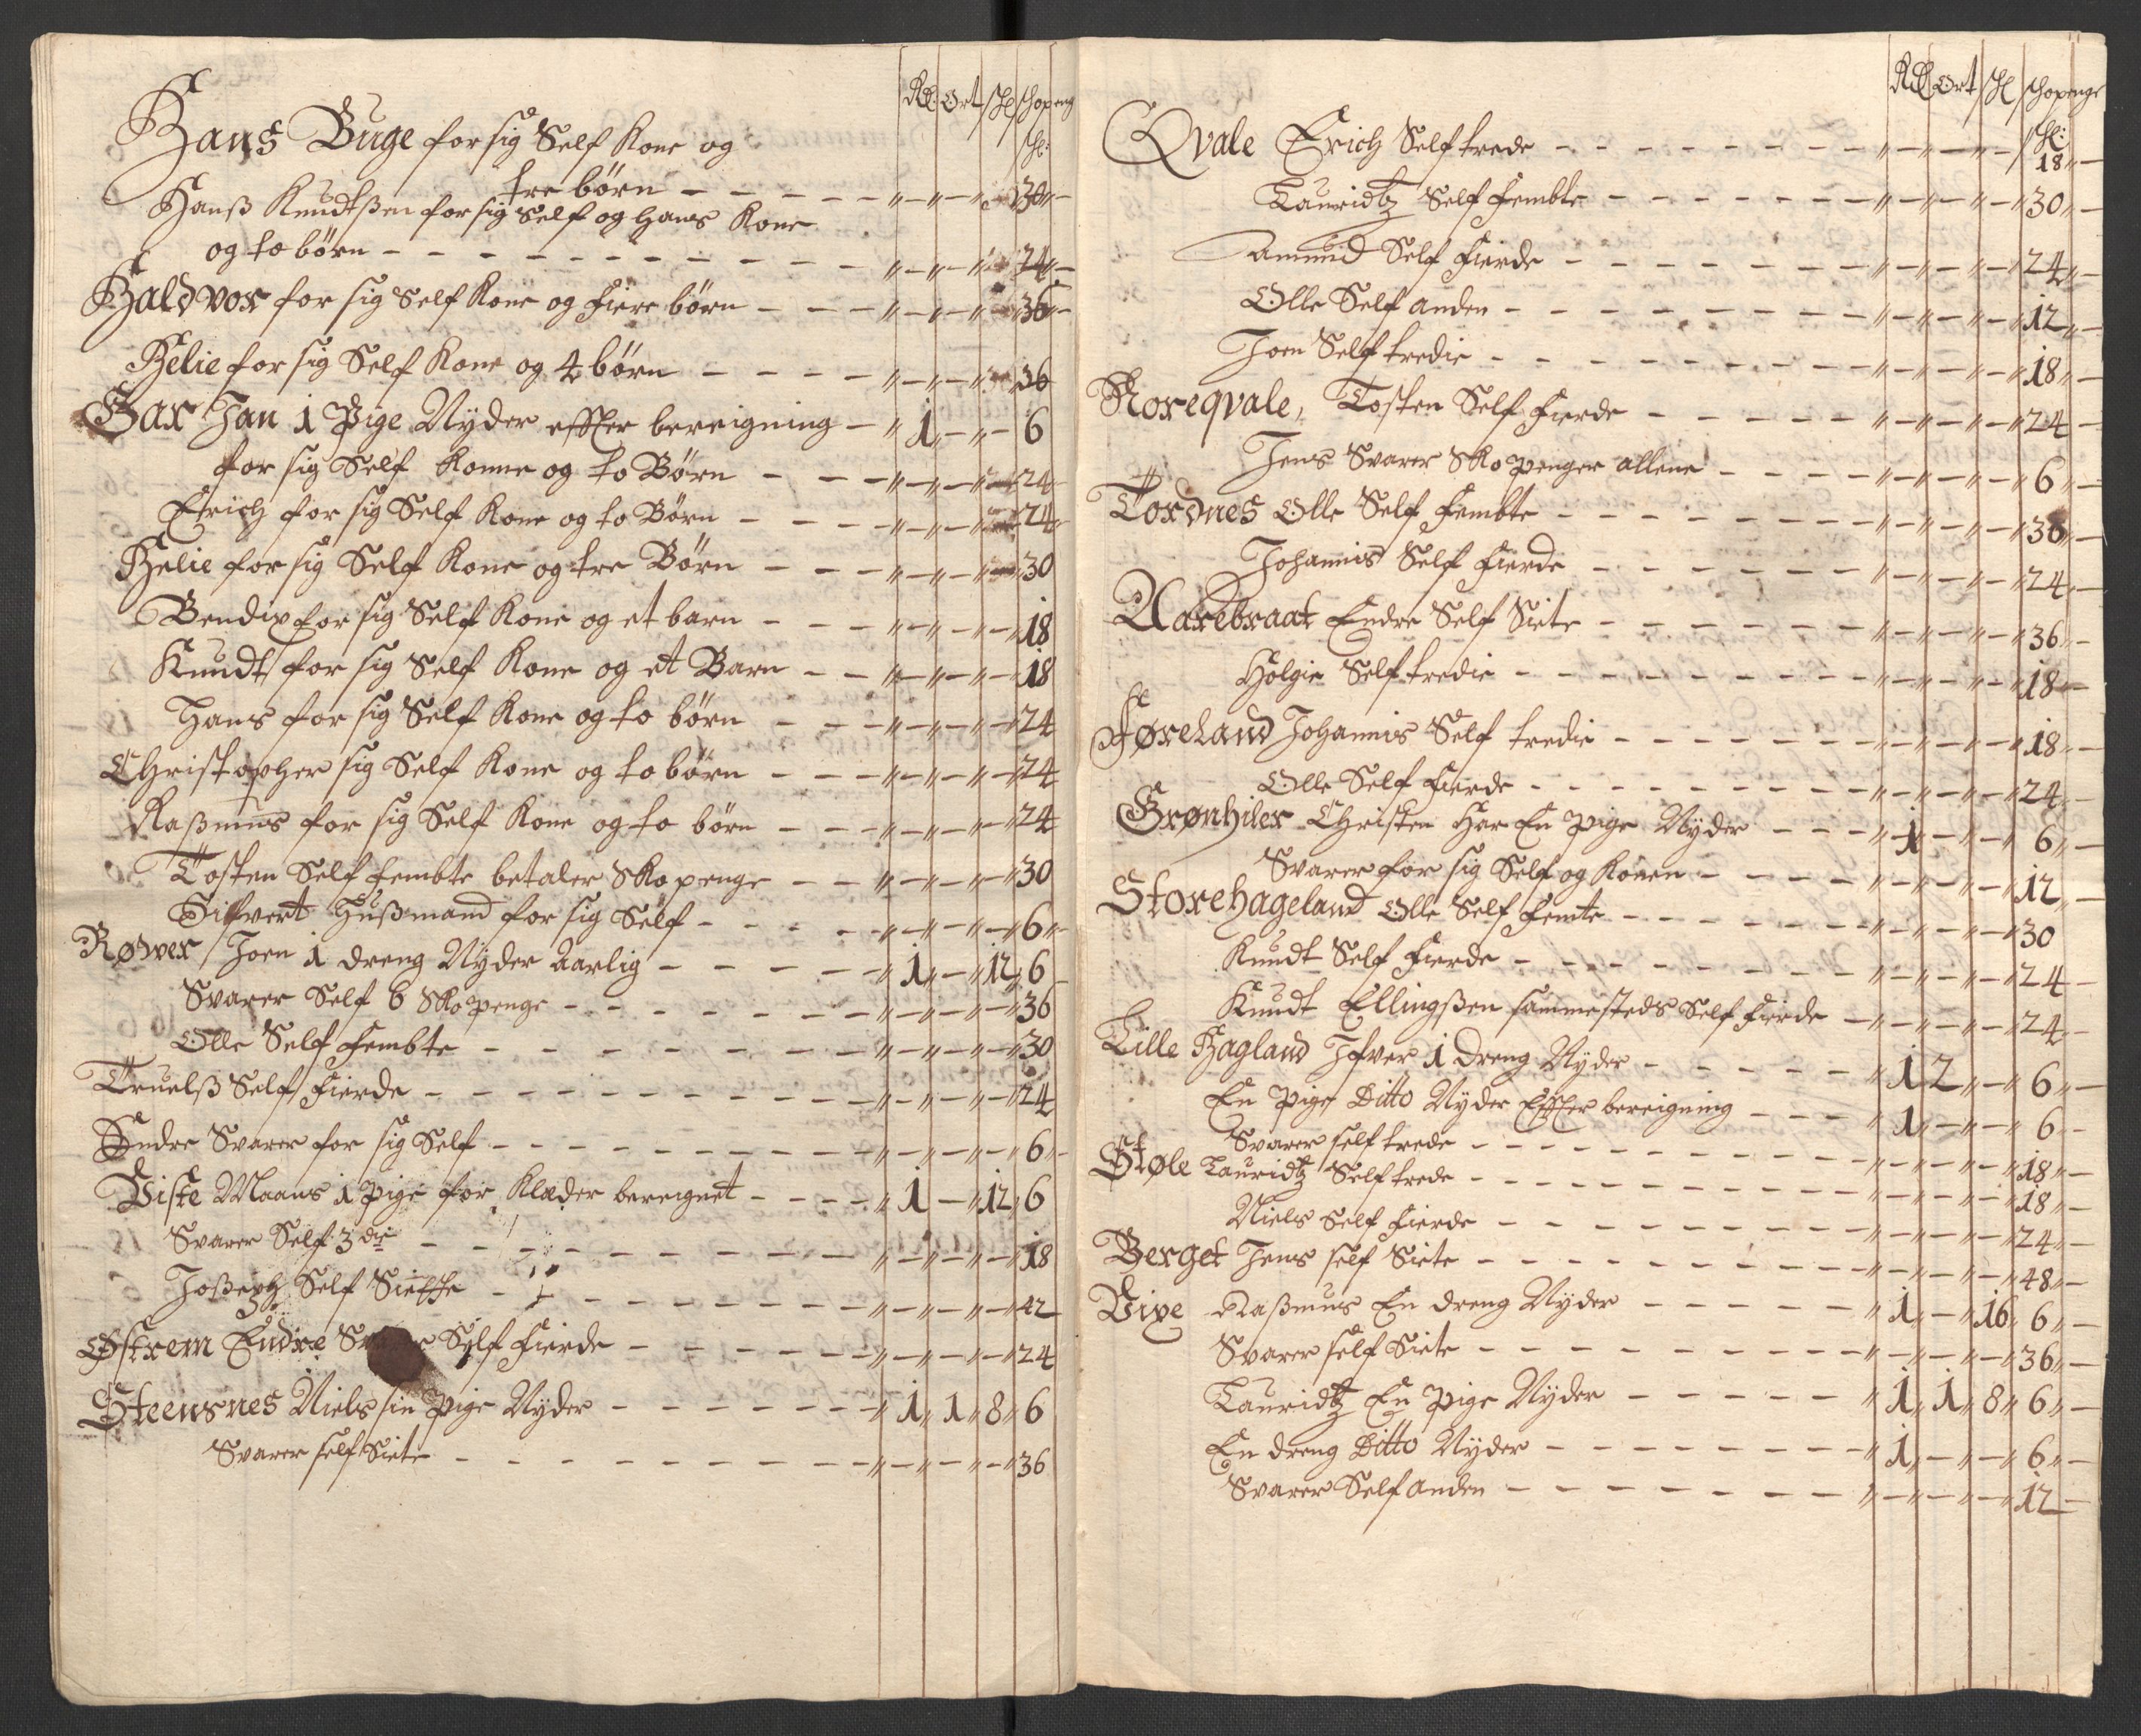 Rdl Ort sl schopeng
sl:
Hans Buge for sig Self Kone og
tre børn - - - - 30
Hanß Knudtßen for sig Self og hans Kone
og to børn - - - - 24
Haldvor for sig Self Kone og Fiere børn - - - 36
Helie for sig Self Kone og 4 børn - - - - 36
Gar Jan 1 Pige Nyder effter bereigning - 1 - - 6
for sig Self Konne og to Børn - - - 24
Erich for sig Self Kone og to Børn - - - 24
Helie for sig Self Kone og tre Børn - - - 30
Bendix for sig Self Kone og et barn - - - 18
Knudt for sig Self Kone og et Barn - - 18
Hans for sig Self Kone og to børn - - - 24
Christopher sig Self Kone og to børn - - - 24
Raßmus for sig Self Kone og to børn - - - 24
Tosten Self Fembte betaler Skopenge - - 30
Sifvert Hußmand for sig Self - - - - 6
Røwer Joen 1 dreng Nyder Aarlig - - - - 1 - 12 6
Svarer Self 6 Skopenge - - - - 36
Olle Self Fembte - - - - 30
Truelß Self Fierde - - - - 24
Endre Svarer for sig Self - - - - 6
Viste Maans 1 pige for Klæder bereignet - - - 1 - 12 6
Svarer Self 3die - - - - 18
Joßeph Self Sieffte - - - - 42
Østrem Endre Self Fierde - - - - 24
Steensnes Niels sin pige Nyder - - - - 1 1 8 6
Svarer self Siete - - - - 36
Rdl Ort sl schopenge
sl:
Qvale Erich Self trede - - - - 18
Lauridtz Self Fembte - - - - 30
Amund Self Fierde - - - - 24
Olle Self anden - - - - 12
Joen Self tredie - - - - 18
Noreqvale, Tosten Self Fierde - - - - 24
Jens Svarer Skopenger allene - - - - 6
Tordnes Olle Self Fembte - - - - 30
Johannis Self Fierde - - - - 24
Aarebraat Endre Self Siete - - - - 36
Holgie Self tredie - - - - 18
Føreland Johannis Self tredie - - - - 18
Olle Self Fierde - - - - 24
Grønhiler Christen Har En pige Nyder - - - 1 - - 6
Svarer for sig Self og Konen - - - - 12
Storehageland Olle Self Femte - - - - 30
Knudt Self Fierde - - - - 24
Knudt Ellingßen sammesteds Self Fierde - 24
Lille Hagland Ifver 1 Dreng Nyder - - - - 1 2 - 6
En Pige Ditto Nyder Effter bereigning - - - 1 - - 6
Svarer self trede - - - - 18
Støle Lauridtz Self trede - - - - 18
Niels Self Fierde - - - - 24
Berget Jens self Siete - - - - 48
Vixe Raßmus En dreng Nyder - - - - 1 - 16 6
Svarer self Siete - - - - 36
Lauridtz En pige Nyder - - - - 1 1 8 6
En dreng Ditto Nyder - - - - 1 - - 6
Svarer Self anden - - - - 12